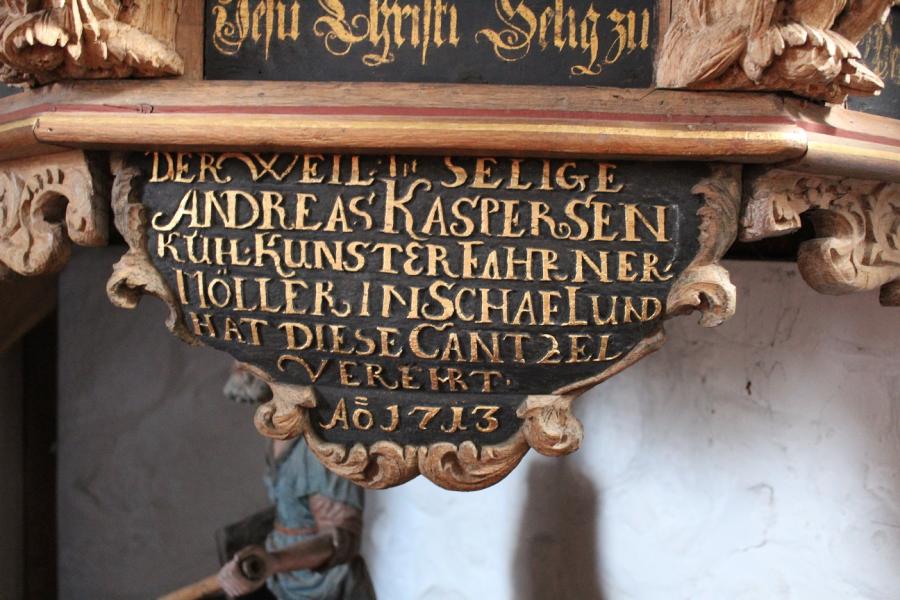 Jesu Christi Selig zu
DER WEIL: IN SELIGE
ANDREAS KASPERSEN
KÜHL: KUNSTERFAHRNER
MÖLLER INSCHAFLUND
HAT DIESE CANTZEL
VEREHRT.
AŌ 1713